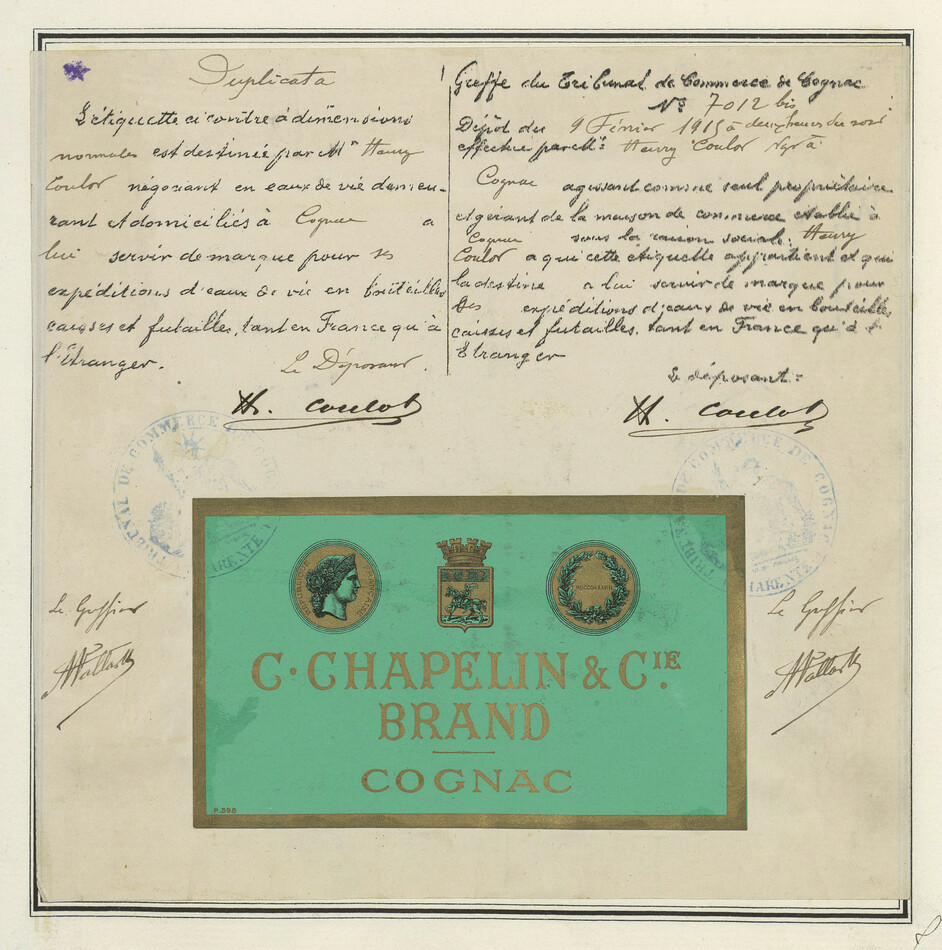 Duplicata
L'étiquette ci contre à dimensions
normales est destinée par Mr Henry
Coulot négociant en eaux de vie demeu-
rant et domiciliés à Cognac a
lui servir de marque pour ses
expéditions d'eaux de vie en bouteilles
caisses et futailles, tant en France qu'à
l'étranger.
Le Déposant.
H. Coulot
Greffe du Tribunal de Commerce de Cognac
No 7012 bis
Dépôt du 9 Février 1915 à deux heures du soir
effectué par M: Henry Coulot Ngt à
Cognac agissant comme seul propriétaire
et gérant de la maison de commerce établie à
Cognac sous la raison sociale: Henry
Coulot a qui cette étiquette appartient et qui
la destine a lui servir de marque pour
ses expéditions d'eaux de vie en bouteilles,
caisses et futailles, tant en France qu'à l'
Etranger
Le déposant:
H. Coulot
TRIBUNAL DE COMMERCE DE COGNAC
CHARENTE
TRIBUNAL DE COMMERCE DE COGNAC
CHARENTE
Le Greffier
Le Greffier
REPUBLIQUE FRANCAISE
C. CHAPELIN & CIE.
BRAND
COGNAC
P.898